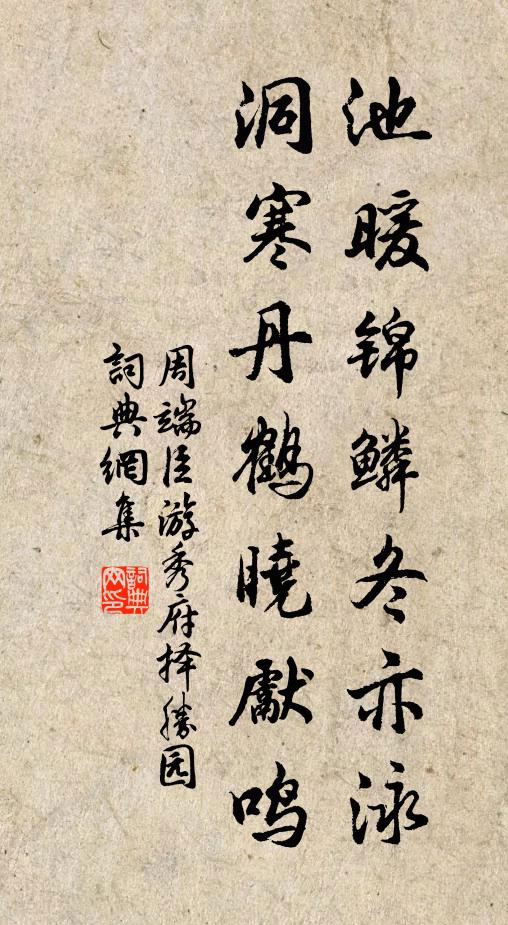 池暖锦鳞冬亦泳
洞寒丹鹤曉獻鸣
周端臣游秀府择勝园
詞典網集
詞典
网印